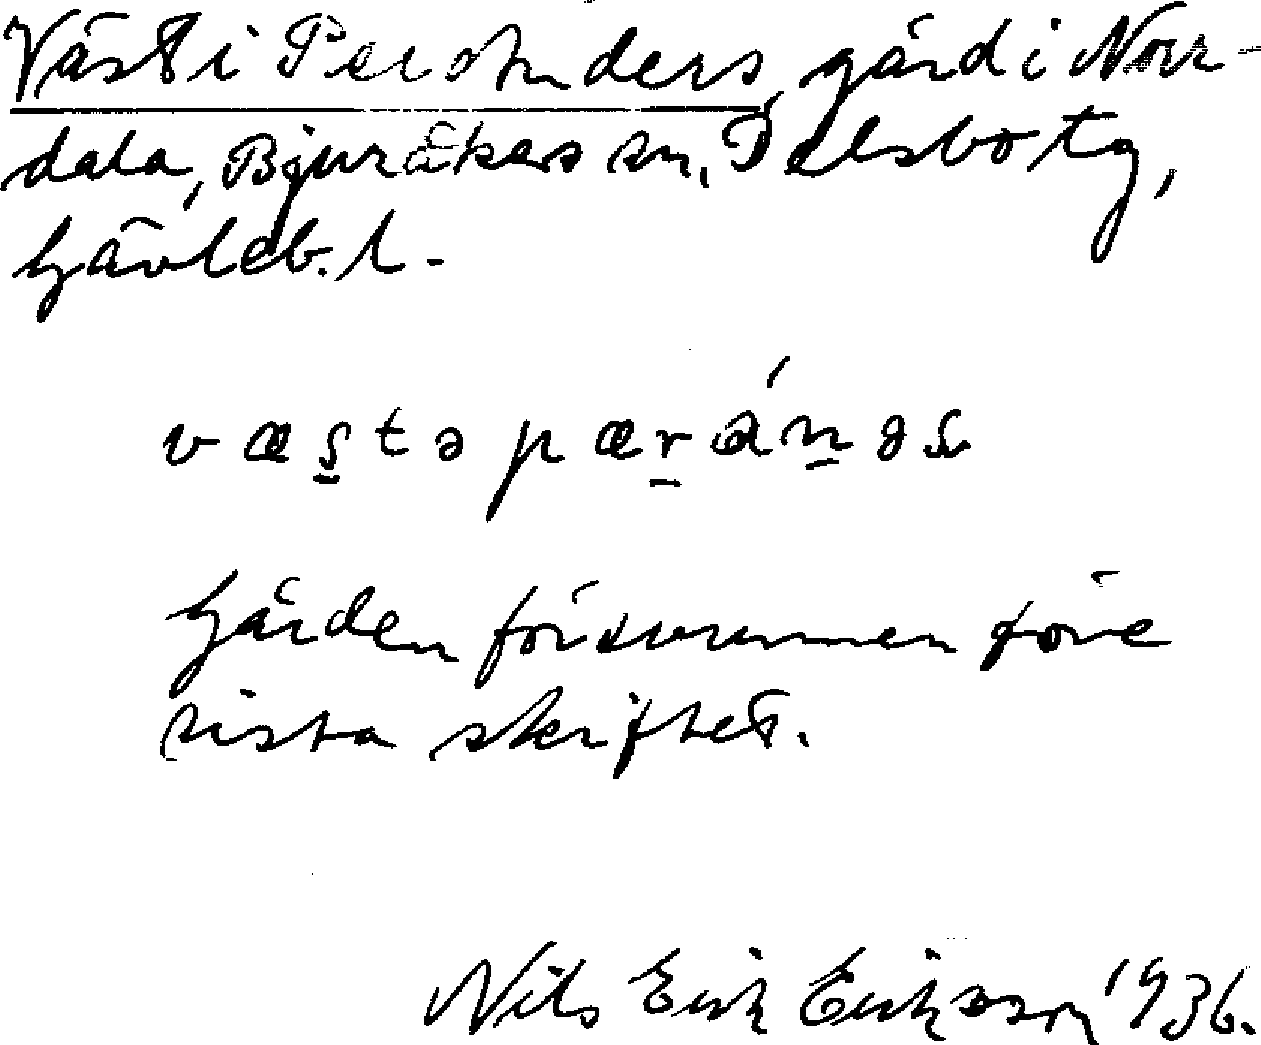 Västi Peranders, gård i Norr-
dala, Bjuråkers sn, Delsbo tg,
Gävleb. l.
væstə pæránəs
Gården försvunnen före
sista skiftet.
Nils Erik Eriksson 1936.